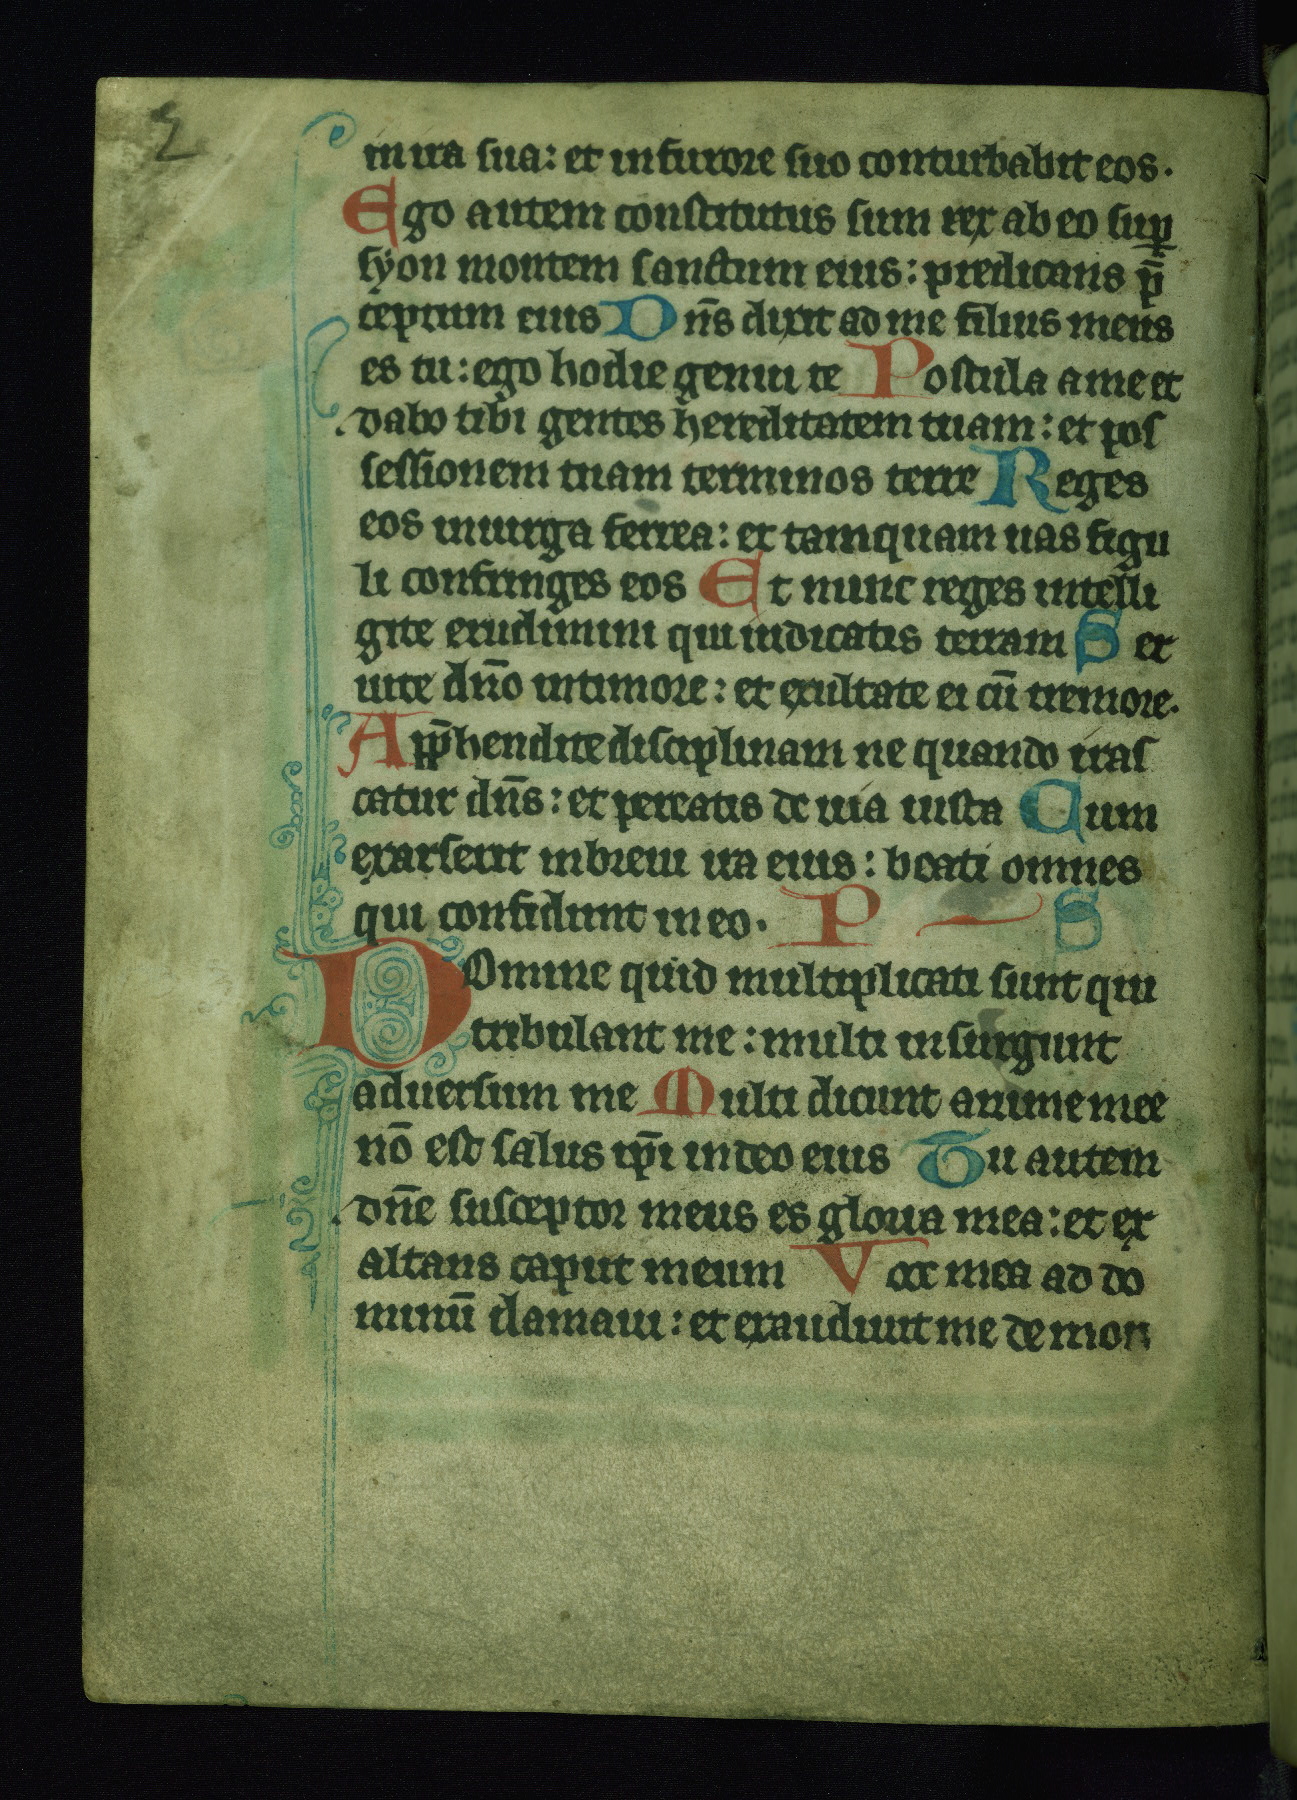 2
in ira sua: et in furore suo conturbabit eos.
Ego autem constitutus sum rex ab eo sup̲
syon montem sanctum eius: predicans p̄
ceptum eius Dn̄s dixit ad me filius meus
es tu: ego hodie genui te Postula a me et
dabo tibi gentes hereditatem tuam: et pos
sessionem tuam terminos terre Reges
eos in uirga ferrea: et tamquam uas figu
li confringes eos Et nunc reges intelli
gite erudimini qui iudicatis terram Ser
uite dn̄o in timore: et exultate ei cū tremore.
App̄hendite disciplinam ne quando iras
catur dn̄s: et pereatis de uia iusta Cum
exarserit in breui ira eius: beati omnes
qui confidunt in eo. P S
Domine quid multiplicati sunt qui
tribulant me: multi insurgunt
aduersum me Multi dicunt anime mee
nō est salus ip̄i in deo eius Tu autem
dn̄e susceptor meus es gloria mea: et ex
altans caput meum Vox mea ad do
minū clamaui: et exaudiuit me de mon